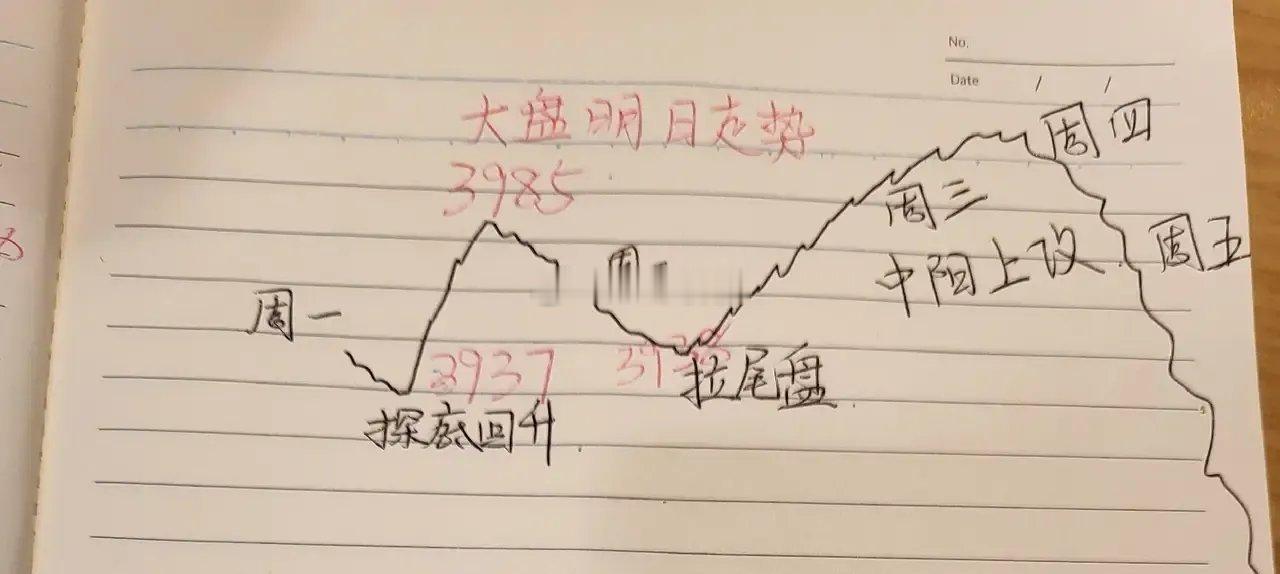 No.
Date / /
大盘明日走势
3985
周四
周三
周五
中阳上议
周一
周
3937
拉尾盘
探底回升